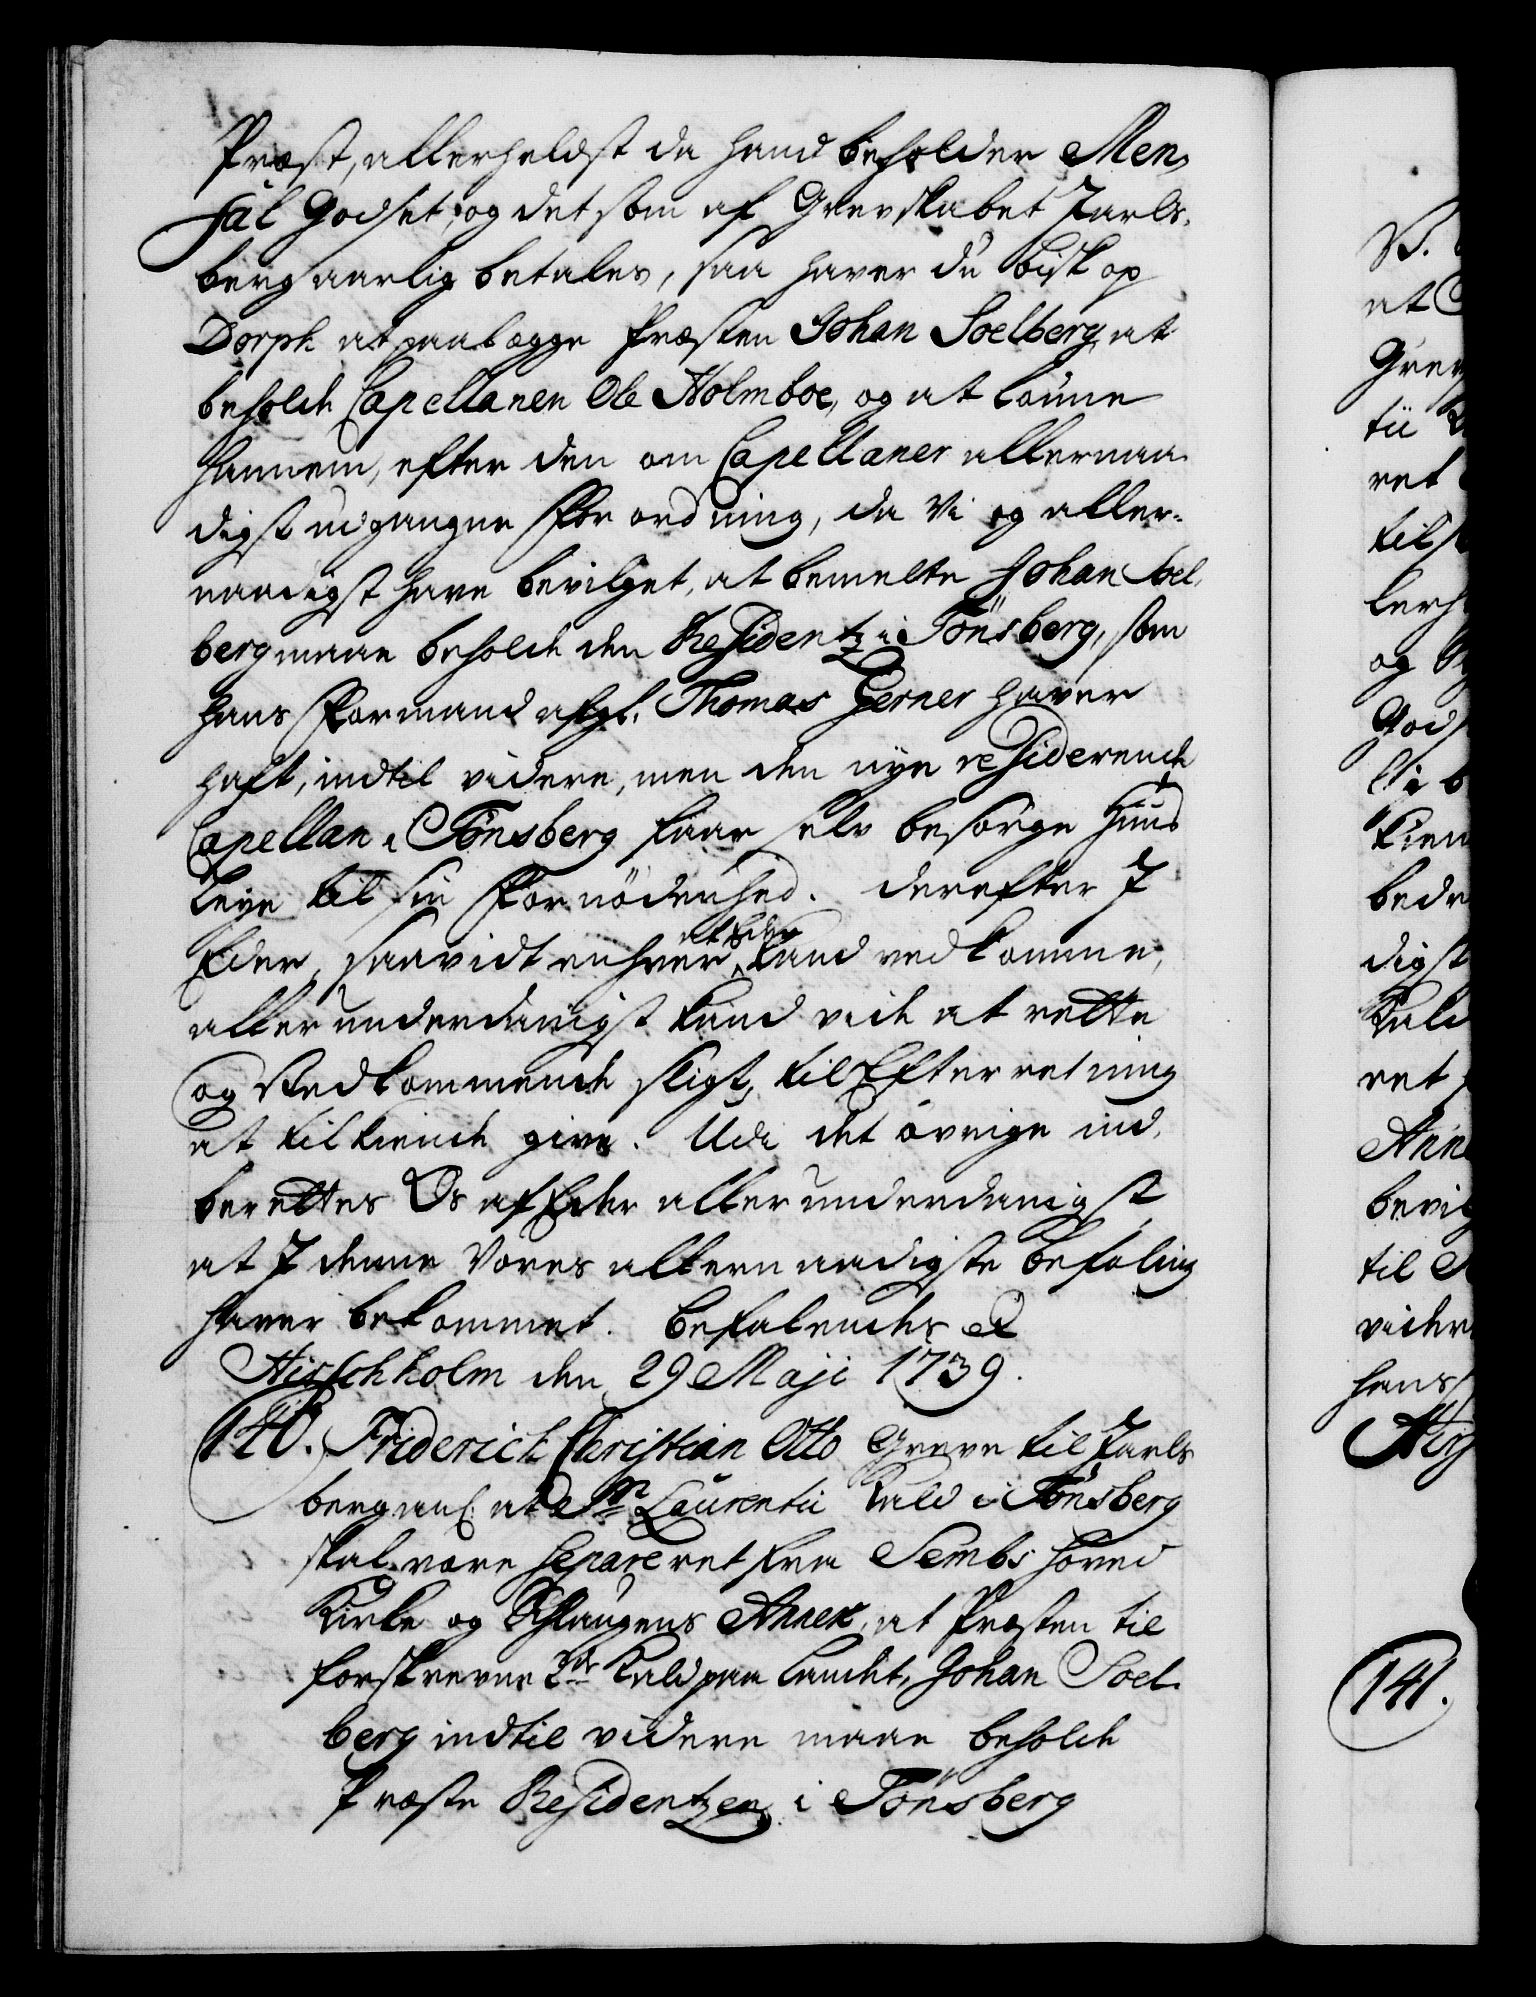 Præst, allerhelst da hand beholder Men,
sal Godset, og det som af Grevskabet Jarls,
berg aarlig betales, saa haver du Biskop
Dorph at paalægge Præsten Johan Soelberg, at
beholde Capellanen Ole Holmboe, og at lønne
hannem, efter den om Capellaner allernaa-
digst udgangne Forordning, da Vi og aller-
naadigst have bevilget, at bemelte Johan Soel,
berg maae beholde den Residentz i Tönsberg, som
hans Formand afg. Thomas Gerner haver
haft, indtil videre, men den nye residerende
Capellan i Tönsberg faar selv besørge Huus
Leye til sin Fornödenhed. derefter I
Eder, saavidt enhver at Eder kand vedkomme,
allerunderdanigst kand vide at rette
og Vedkommende sligt, til Efterretning
at tilkiende give. Udi det øvrige ind,
berettes Os af Eder allerunderdanigst,
at I denne Vores allernaadigste Befaling
haver bekommet. Befalendes &
Hirschholm den 29 Maji 1739.
140. Friderich Christian Otto Greve til Jarls
berg an: at St Laurentii Kald i Tönsberg
skal være separeret fra Sembs Hoved
Kirke og Slaugens Annex, at Præsten til
forskrevne Kald paa Landet, Johan Soel-
berg indtil videre maae beholde
Præste Residentzen i Tönsberg
S.
at
Grev
tii
ret
tils
lerh
og
Gods
Vi b
kien
bedr
digst
Kald
ret
Anne
bevil
til
videre
hans
Hirs
141.